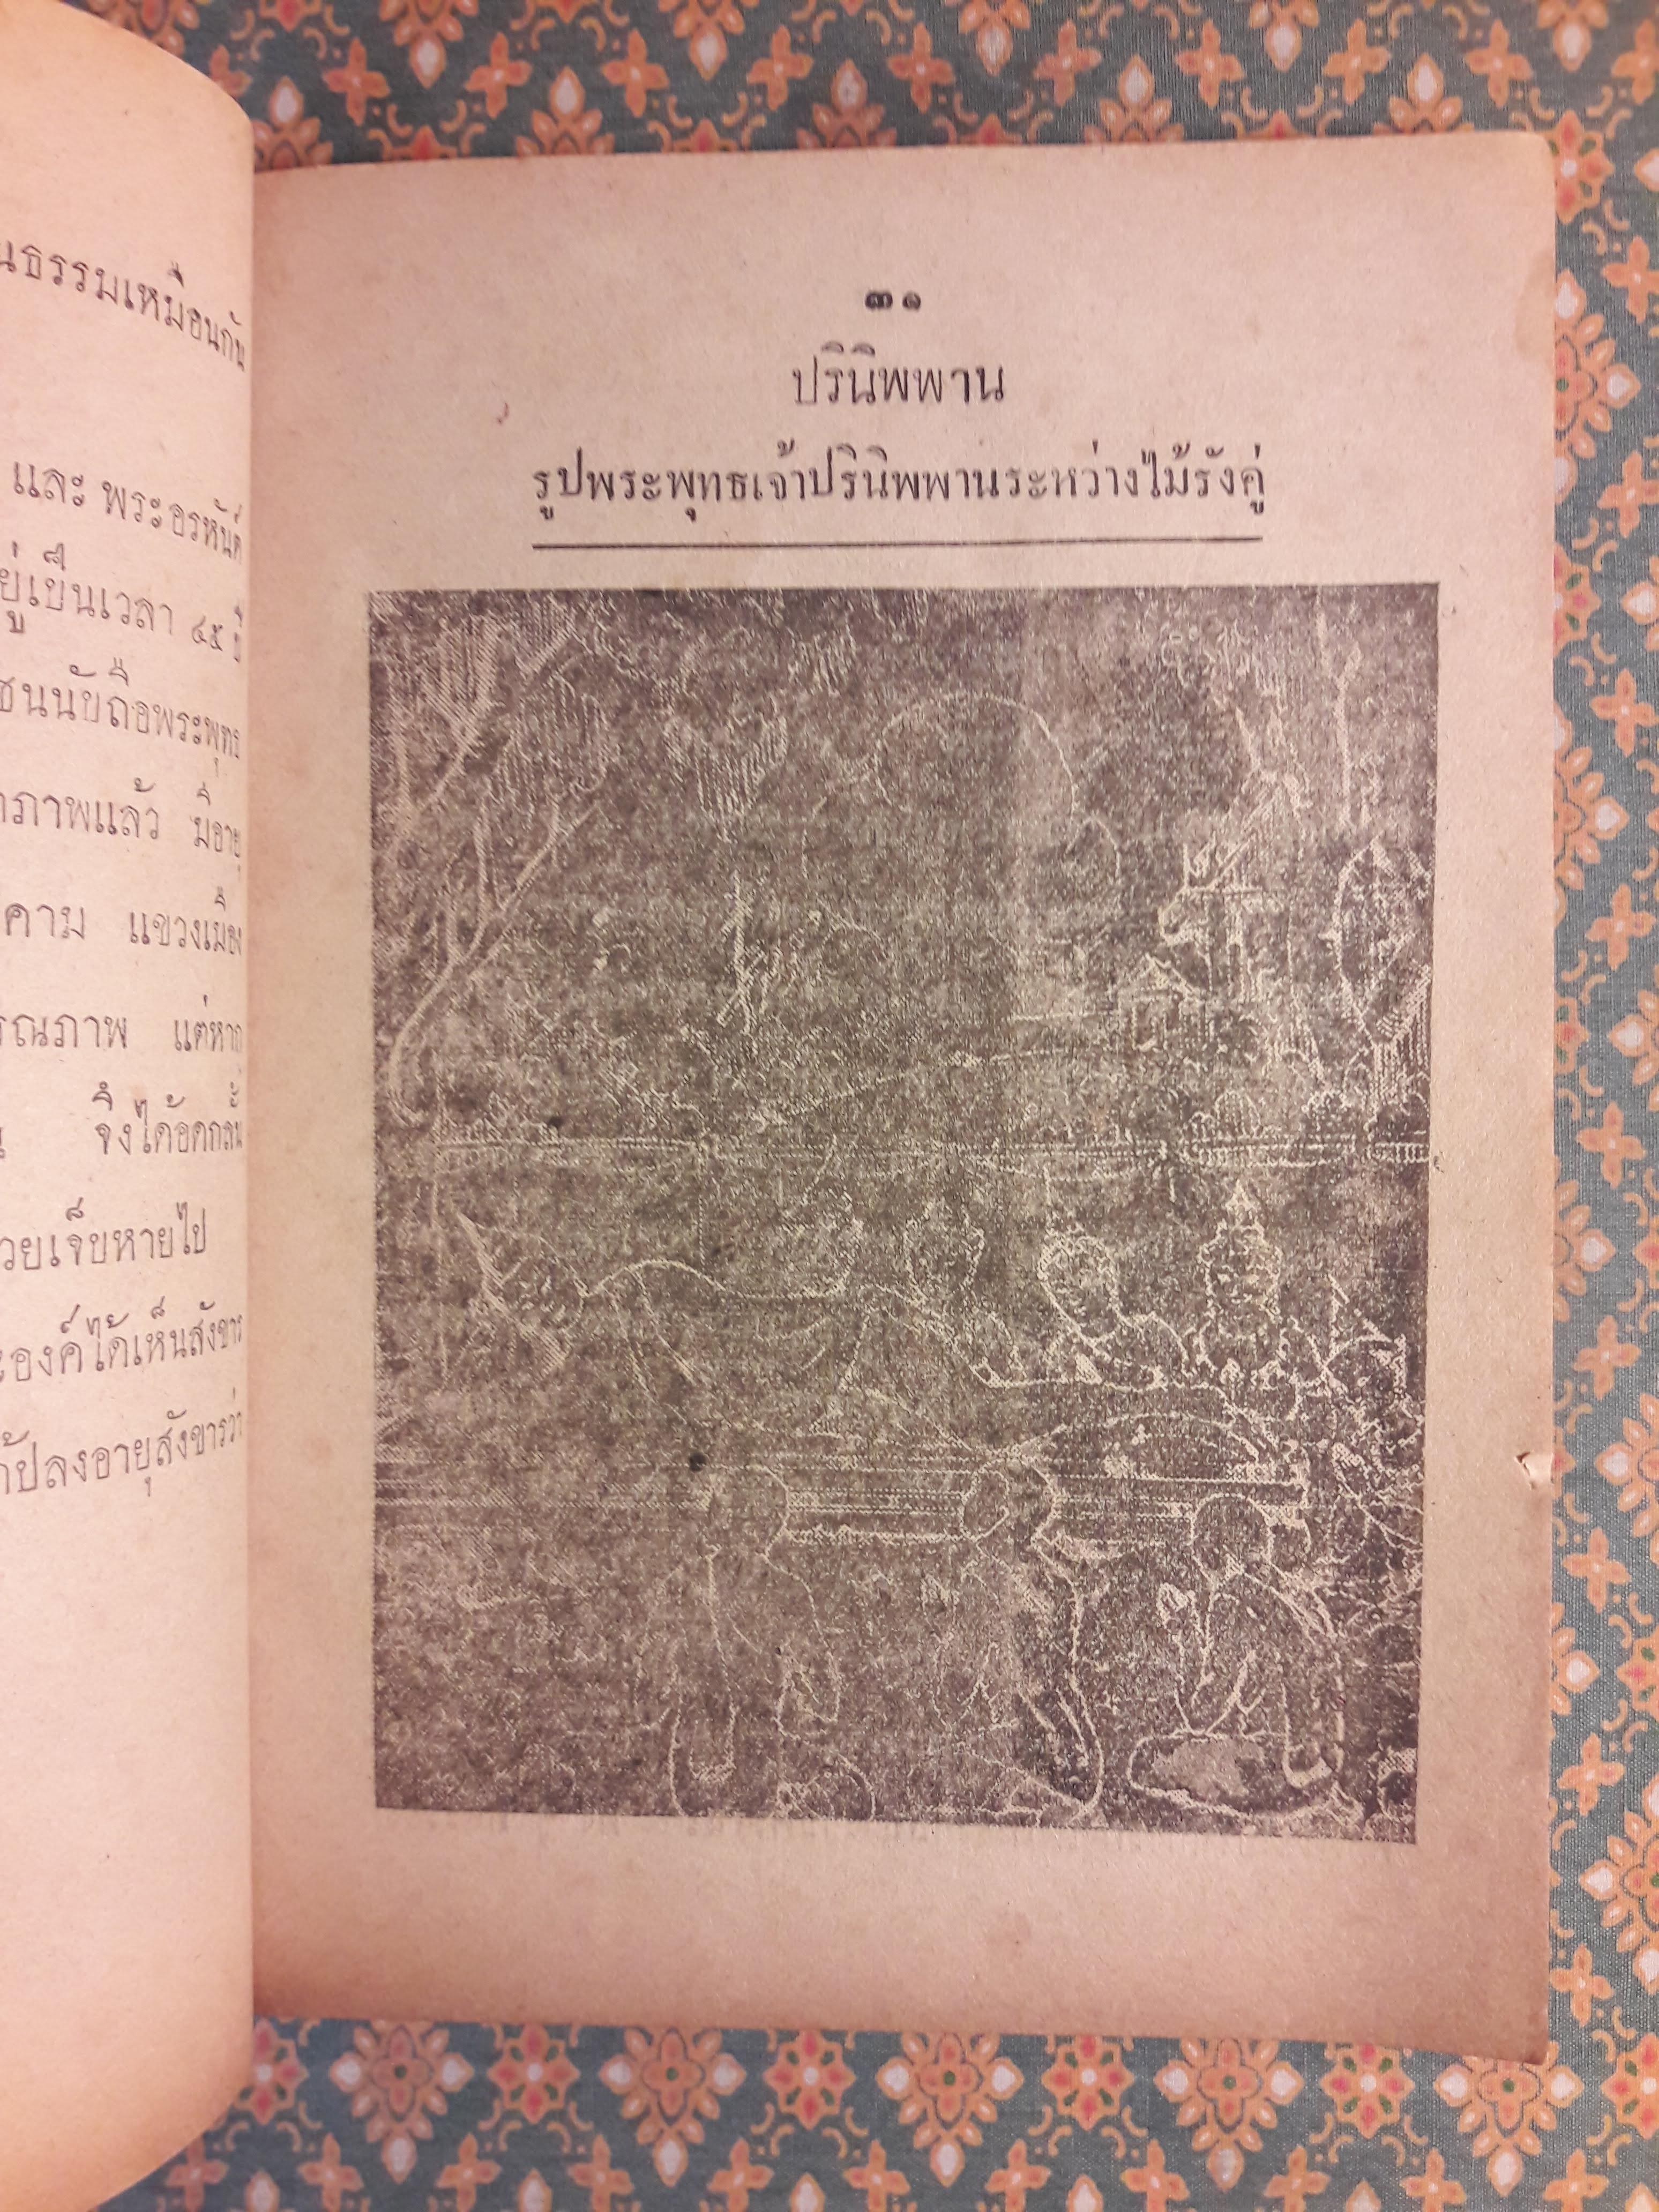 นธรรมเหมือนกัน
และ พระอรหันต์
ยู่เป็นเวลา ๔๕ ปี
ชนนับถือพระพุทธ
ภาพแล้ว มีอายุ
คาม แขวงเมือง
รณภาพ แต่หาก
จึงได้อดกลั้น
วยเจ็บหายไป
ะองค์ได้เห็นสังขาร
ปลงอายุสังขารว่า
๓๑
ปรินิพพาน
รูปพระพุทธเจ้าปรินิพพานระหว่างไม้รังคู่